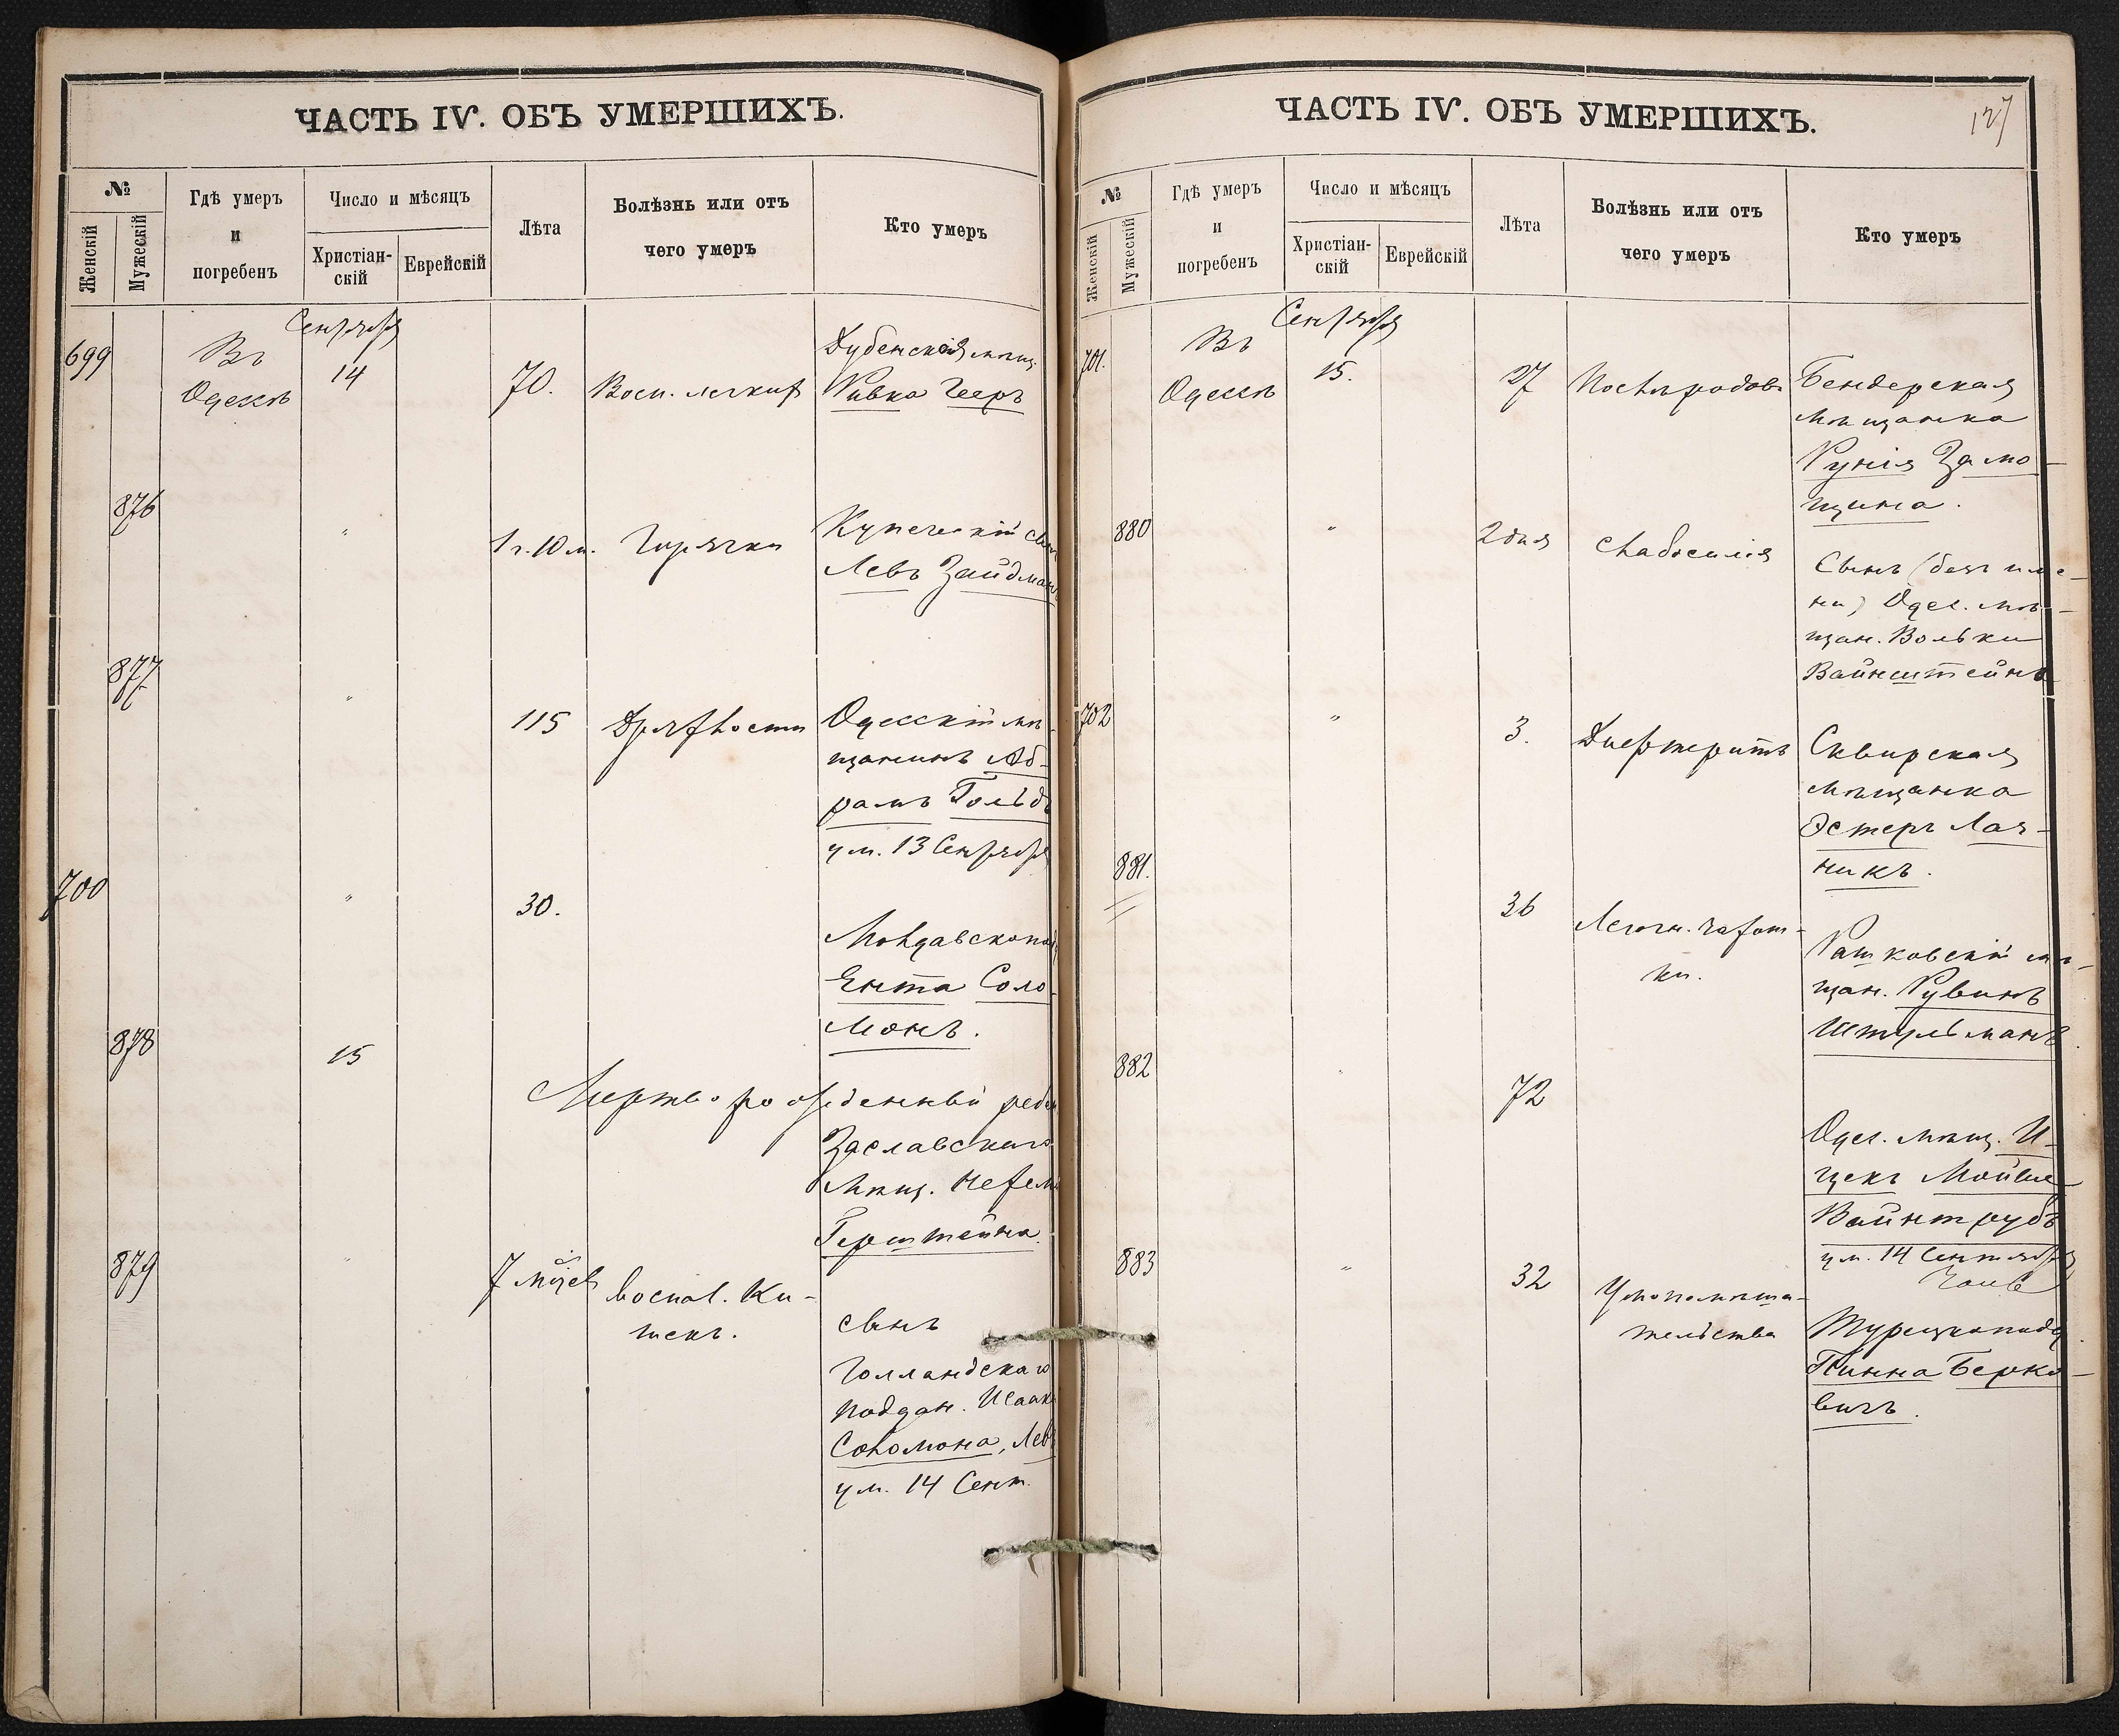 ЧАСТЬ IV. ОБЪ УМЕРШИХЪ.
№
Женскій
Мужескій
Гдѣ умеръ
и
погребенъ
Число и мѣсяцъ
Христіан-
скій
Еврейскій
Лѣта
Болѣзнь или отъ
чего умеръ
Кто умеръ
Сентября
699 Въ
Одессѣ 14 70. Восп. легкихъ
Дубенская мѣщ.
Ривка Гееръ
876 " 1 г. 10 м. Горячки
Купеческій сынъ
Левъ Зайдманъ
877 " 115 Дряхлости
Одесскій мѣ-
щанинъ Аб-
рамъ Гольдъ
ум. 13 Сентября
700 " 30.
Молдавскопод
Ента Соло-
монъ.
878 15
Мертворожденный ребен
Заславскаго
мѣщ.
Герштейна
879 " 7 мѣсяц. воспал. Ки-
шекъ.
сынъ
Голландскаго
поддан. Исаака
Соломона, Левъ
ум. 14 Сент.
ЧАСТЬ IV. ОБЪ УМЕРШИХЪ.
127
№
Женскій
Мужескій
Гдѣ умеръ
и
погребенъ
Число и мѣсяцъ
Христіан-
скій
Еврейскій
Лѣта
Болѣзнь или отъ
чего умеръ
Кто умеръ
Сентября
701. Въ
Одессѣ 15. 27 Послѣродов.
Бендерская
мѣщанка
Руня Замо-
щина.
880 " 2 дня слабосилія
Сынъ (безъ име-
ни) Одес. мѣ-
щан. Вольки
Вайнштейнъ
702 " 3. Дифтеритъ
Сквирская
мѣщанка
Эстеръ Лая-
никъ.
881. " 36 Легочн. чахот-
ки.
Рашковскій мѣ-
щан. Рувинъ
Штульманъ.
882 " 72
Одес. мѣщ. И-
цекъ Мойше-
Вайнтрубъ
ум. 14 Сентября
883 " 32 Умопомѣша-
тельства
Турецкоподд.
Пинна Берко-
вичъ.